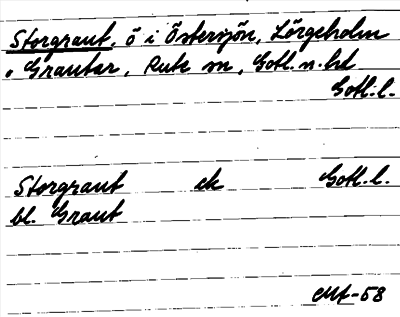 Storgraut, ö i Östersjön, Lörgeholm
o Grautar, Rute sn, Gotl. n. hd
Gotl. l.
Storgraut ek Gotl. l.
bl. Graut
-58